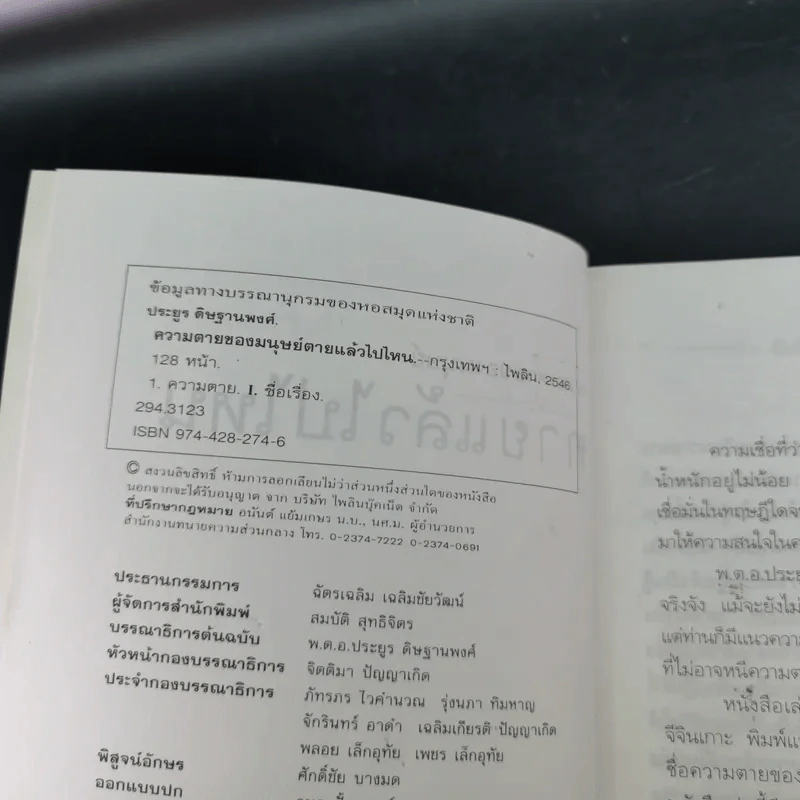 ข้อมูลทางบรรณานุกรมของหอสมุดแห่งชาติ
ประยูร ดิษฐานพงศ์.
ความตายของมนุษย์ตายแล้วไปไหน.--กรุงเทพฯ : ไพลิน, 2546
128 หน้า.
1. ความตาย. I. ชื่อเรื่อง.
294.3123
ISBN 974-428-274-6
© สงวนลิขสิทธิ์ ห้ามการลอกเลียนไม่ว่าส่วนหนึ่งส่วนใดของหนังสือ
นอกจากจะได้รับอนุญาต จาก บริษัท ไพลินบุ๊คเน็ต จำกัด
ที่ปรึกษากฎหมาย อนันต์ แย้มเกษร น.บ., นศ.ม. ผู้อำนวยการ
สำนักงานทนายความส่วนกลาง โทร. 0-2374-7222 0-2374-0691
ประธานกรรมการ ฉัตรเฉลิม เฉลิมชัยวัฒน์
ผู้จัดการสำนักพิมพ์ สมบัติ สุทธิจิตร
บรรณาธิการต้นฉบับ พ.ต.อ.ประยูร ดิษฐานพงศ์
หัวหน้ากองบรรณาธิการ จิตติมา ปัญญาเกิด
ประจำกองบรรณาธิการ ภัทรภร ไวคำนวณ รุ่งนภา ทิมหาญ
จักรินทร์ อาดำ เฉลิมเกียรติ ปัญญาเกิด
พลอย เล็กอุทัย เพชร เล็กอุทัย
พิสูจน์อักษร ศักดิ์ชัย บางมด
ออกแบบปก
ความเชื่อที่ว่า
น้ำหนักอยู่ไม่น้อย
เชื่อมั่นในทฤษฎีใดจ
มาให้ความสนใจในค
พ.ต.อ.ประย
จริงจัง แม้จะยังไม่
แต่ท่านก็มีแนวความ
ที่ไม่อาจหนีความต
หนังสือเล่
จีจินเกาะ พิมพ์แ
ชื่อความตายของ